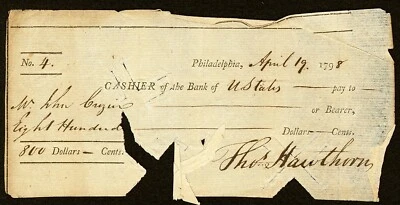 No. 4. Philadelphia, April 19. 1798
CASHIER of the Bank of U States — pay to
Mr. John — or Bearer,
Eight Hundred — Dollars — Cents.
800 Dollars — Cents. Thos. Hawthorn